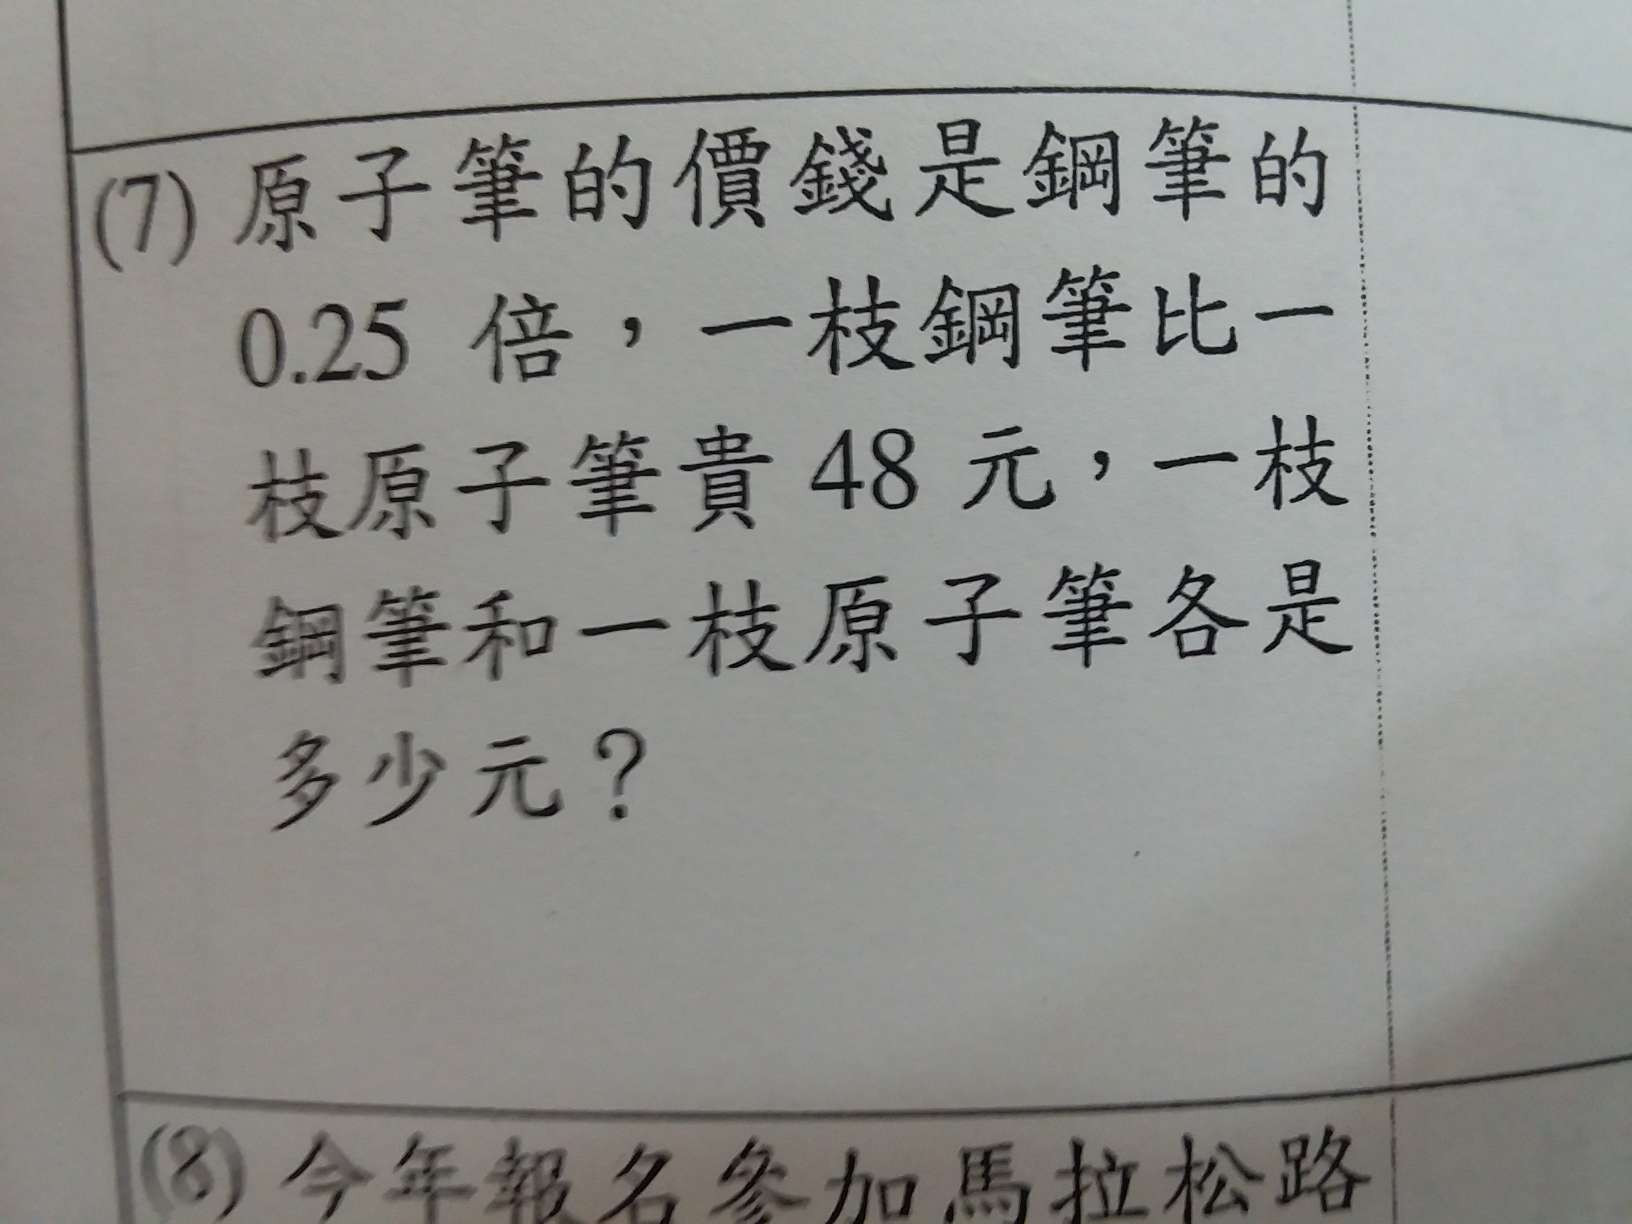 (7) 原子筆的價錢是鋼筆的
0.25 倍，一枝鋼筆比一
枝原子筆貴 48 元，一枝
鋼筆和一枝原子筆各是
多少元？
(8) 今年報名參加馬拉松路